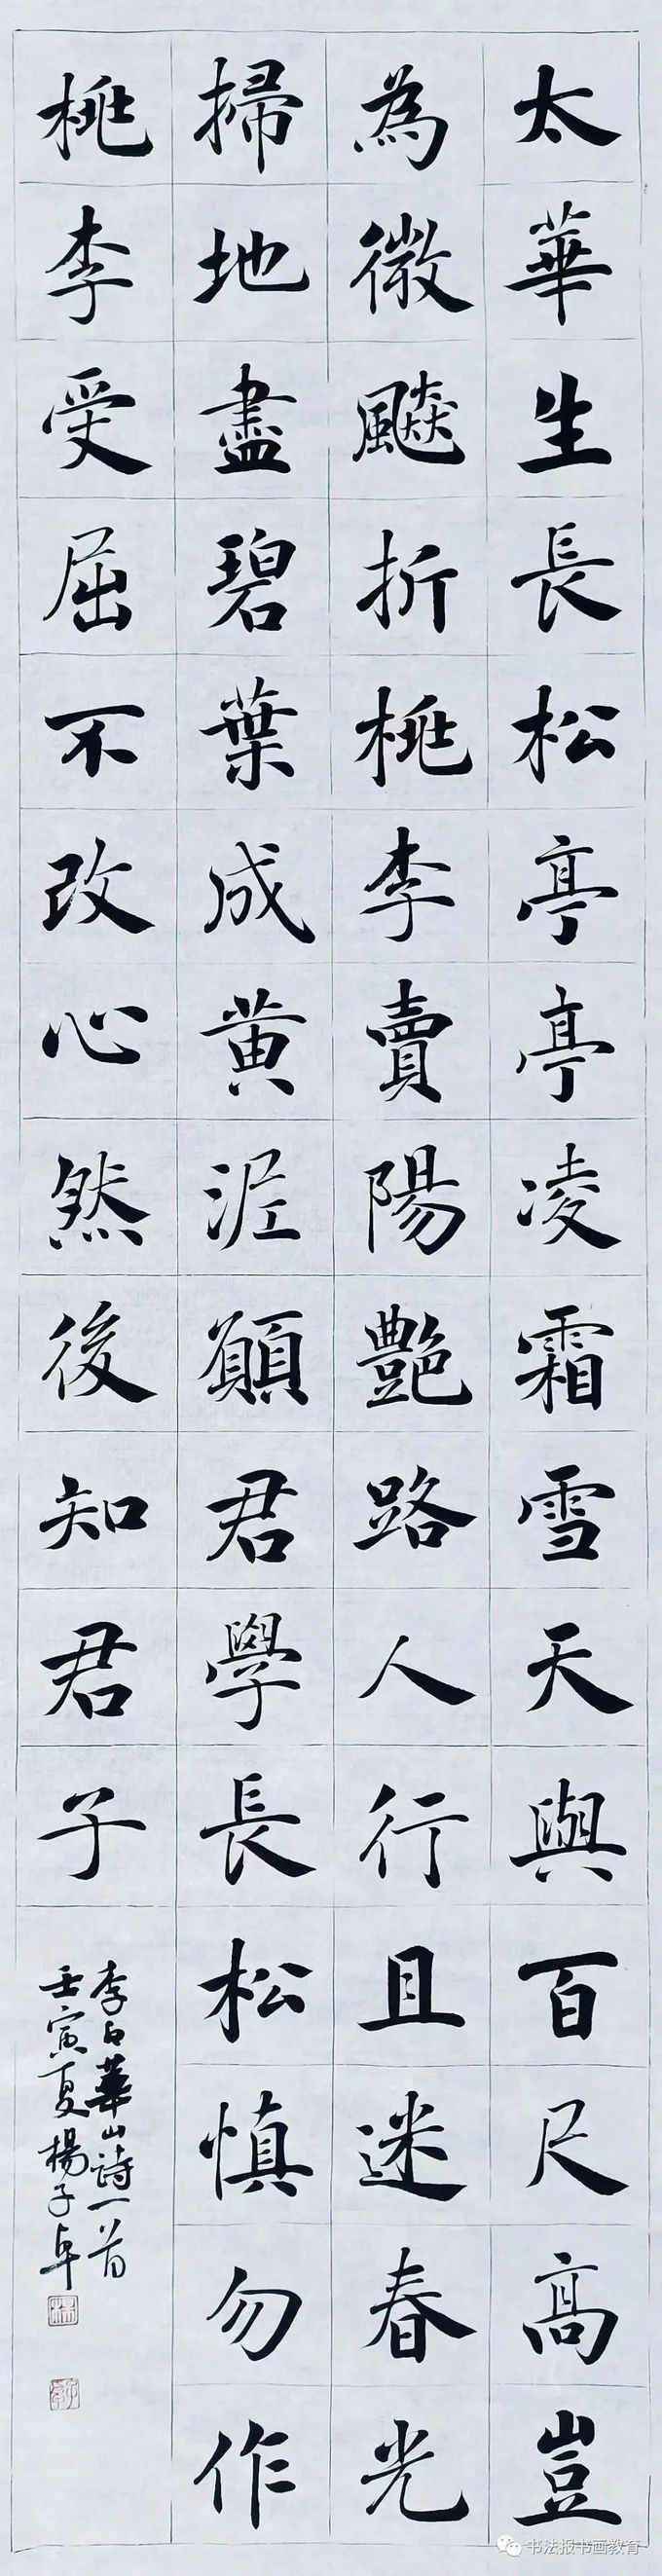 太華生長松亭亭凌霜雪天與百尺高豈
為微飇折桃李賣陽艷路人行且迷春光
掃地盡碧葉成黄泥願君學長松慎勿作
桃李受屈不改心然後知君子
李白華山詩一首
壬寅夏楊子卓
书法报书画教育